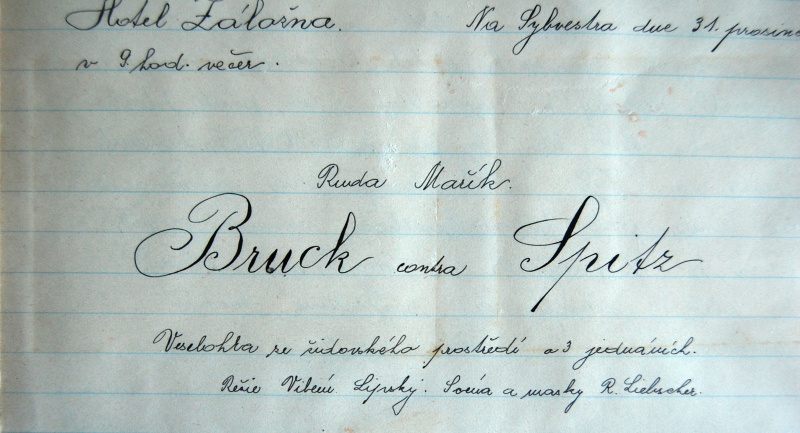 Hotel Záložna. Na Sylvestra dne 31. prosince
v 9. hod. večer.
Ruda Mařík.
Bruck contra Spitz
Veselohra ze židovského prostředí o 3 jednáních.
Režie Lipský. Scéna a masky R. Liebscher.